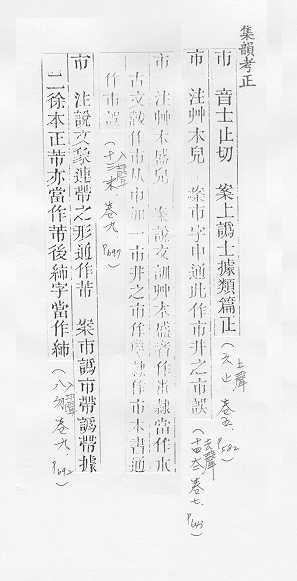 集韻考正
市 音士止切 案上譌士據類篇正(上聲 六止 卷五 P.502)
市 注艸木皃 案市字中通此作市井之市誤(去聲 十四泰 卷七 P.643)
市 注艸木盛皃 案說文訓艸木盛
古文 作市从市加一市井之市作 市末書通
作市(入聲 十三末 卷九 P.697)
市 注說文象連帶之形通作芾 案市譌市帶譌帶據
二徐本正芾亦當作芾後紼字當作紼(入聲 八勿 卷九 P.692)